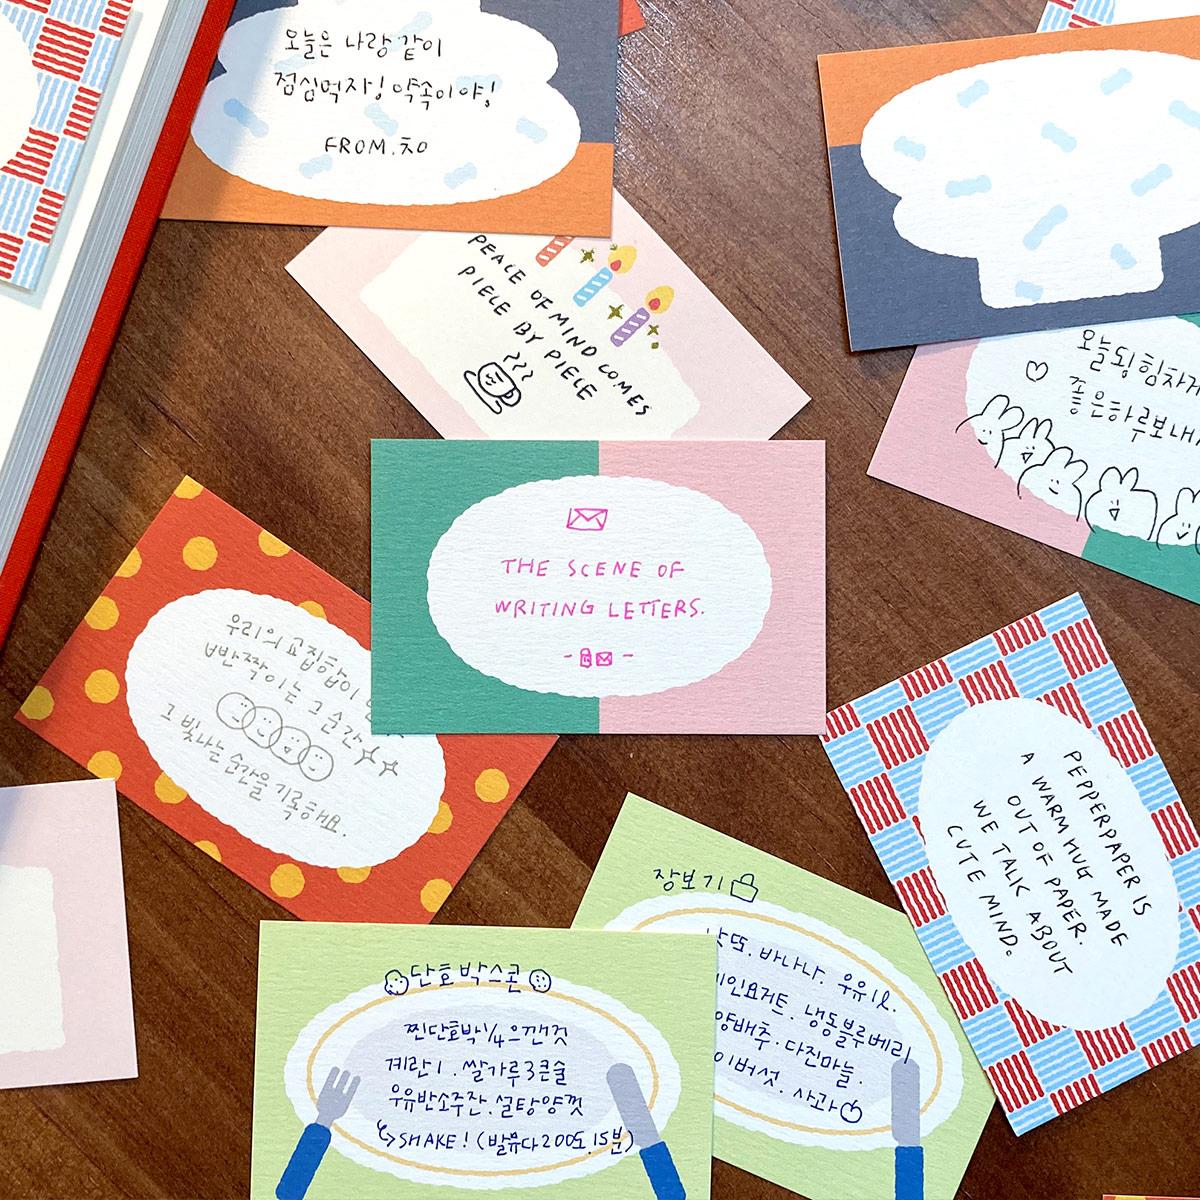 오늘은 나랑 같이
점심먹자! 약속이야!
FROM. 차
PEACE OF MIND COMES
PIECE BY PIECE
오늘도! 힘차게
좋은하루보내
THE SCENE OF
WRITING LETTERS.
우리의 교집합이
반짝이는 그 순간
그 빛나는 순간을 기록해요.
PEPPERPAPER IS
A WARM HUG MADE
OUT OF PAPER.
WE TALK ABOUT
CUTE MIND.
장보기
낫또. 바나나. 우유1L.
인요거트. 냉동블루베리
양배추. 다진마늘.
이버섯. 사과
단호박스콘
찐단호박¼ 으깬것
계란1. 쌀가루3큰술
우유반소주잔. 설탕양껏
SHAKE! (발뮤다200도.15분)